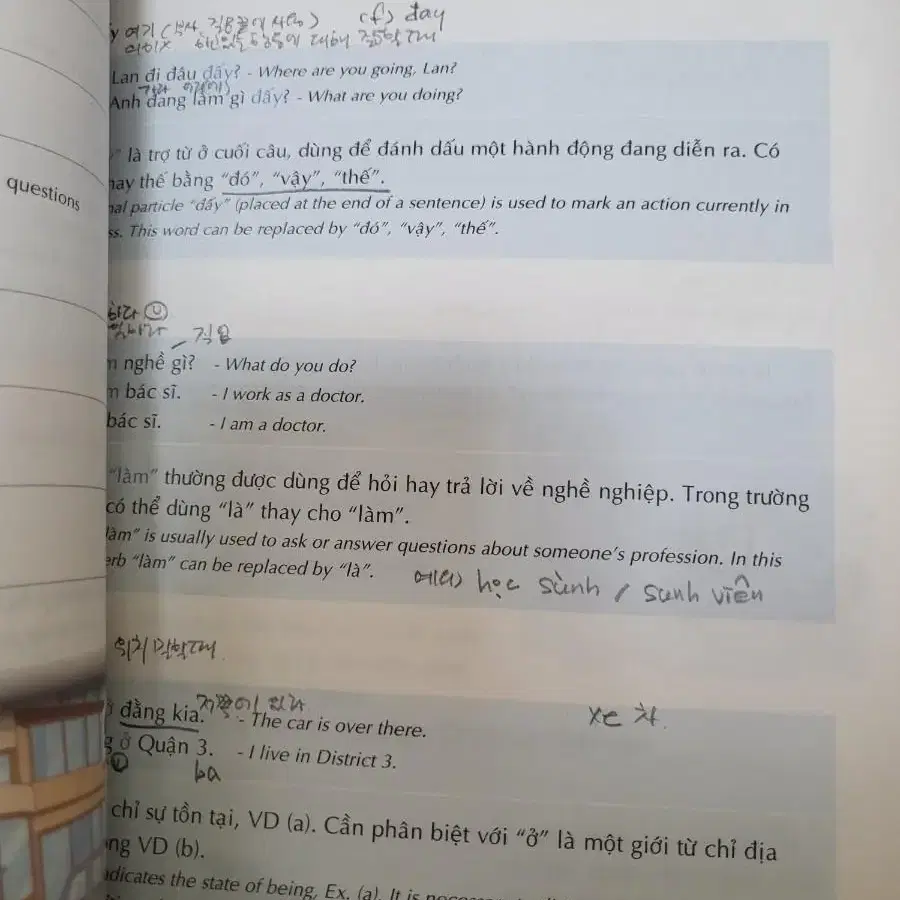 y 여기 (부사, 직용끝에 사용) cf) đay
의미X 하고있는 행동에 대해 강조할때
Lan đi đâu đấy? - Where are you going, Lan?
Anh đang làm gì đấy? - What are you doing?
" là trợ từ ở cuối câu, dùng để đánh dấu một hành động đang diễn ra. Có
hay thế bằng "đó", "vậy", "thế".
questions
nal particle "đấy" (placed at the end of a sentence) is used to mark an action currently in
ss. This word can be replaced by "đó", "vậy", "thế".
하다
일하다 직업
m nghề gì? - What do you do?
m bác sĩ. - I work as a doctor.
bác sĩ. - I am a doctor.
"làm" thường được dùng để hỏi hay trả lời về nghề nghiệp. Trong trường
có thể dùng "là" thay cho "làm".
làm" is usually used to ask or answer questions about someone's profession. In this
erb "làm" can be replaced by "là".
예외) học sình / sunh viên
위치 말할때
저쪽에 있다
đằng kia. - The car is over there.
xe 차.
g ở Quận 3. - I live in District 3.
ba
chỉ sự tồn tại, VD (a). Cần phân biệt với "ở" là một giới từ chỉ địa
ng VD (b).
ndicates the state of being, Ex. (a). It is